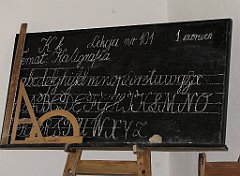 K k lekcja nr 101 1 czerwca
Temat: Kaligrafia
abcdefghijklmnoprstuwyz
ABCDEFGHIJKLMNO
W X Y Z